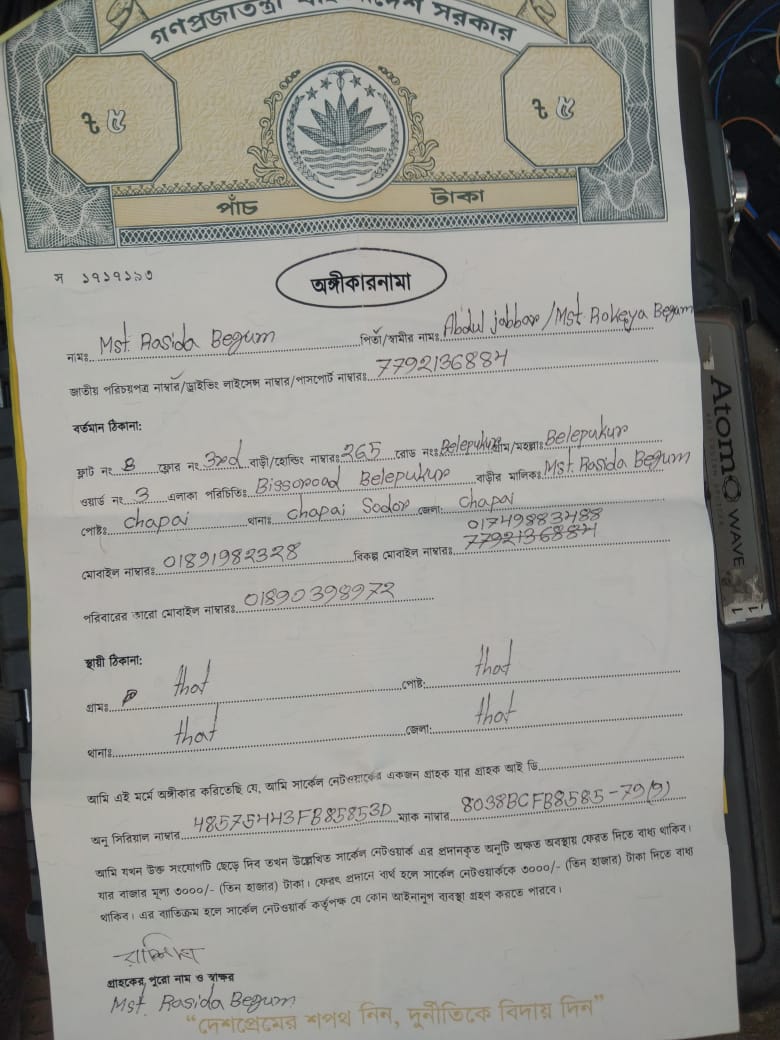 গণপ্রজাতন্ত্রী বাংলাদেশ সরকার
৳ ৫
৳ ৫
পাঁচ টাকা
স ১৭১৭১৯৩
অঙ্গীকারনামা
নামঃ Mst. Rasida Begum পিতা/স্বামীর নামঃ Abdul jabbar/Mst. Rokeya Begum
জাতীয় পরিচয়পত্র নাম্বার/ড্রাইভিং লাইসেন্স নাম্বার/পাসপোর্ট নাম্বারঃ 7792136884
বর্তমান ঠিকানা:
ফ্লাট নং B ফ্লোর নং 3red বাড়ী/হোল্ডিং নাম্বারঃ 265 রোড নংঃ Belepukur গ্রাম/মহল্লাঃ Belepukur
ওয়ার্ড নং 3 এলাকা পরিচিতিঃ Bissoroad Belepukur বাড়ীর মালিকঃ Mst. Rasida Begum
পোষ্টঃ chapai থানাঃ chapai Sodor জেলা: chapai
01749883488
মোবাইল নাম্বারঃ 01891982328 বিকল্প মোবাইল নাম্বারঃ 7792136884
পরিবারের কারো মোবাইল নাম্বারঃ 01890398972
স্থায়ী ঠিকানা:
গ্রামঃ that পোষ্ট: that
থানাঃ that জেলা: that
আমি এই মর্মে অঙ্গীকার করিতেছি যে, আমি সার্কেল নেটওয়ার্কের একজন গ্রাহক যার গ্রাহক আই ডি
অনু সিরিয়াল নাম্বার 48575443FB85853D ম্যাক নাম্বার 8038BCFB8585-79(9)
আমি যখন উক্ত সংযোগটি ছেড়ে দিব তখন উল্লেখিত সার্কেল নেটওয়ার্ক এর প্রদানকৃত অনুটি অক্ষত অবস্থায় ফেরত দিতে বাধ্য থাকিব।
যার বাজার মূল্য ৩০০০/- (তিন হাজার) টাকা। ফেরৎ প্রদানে ব্যর্থ হলে সার্কেল নেটওয়ার্ককে ৩০০০/- (তিন হাজার) টাকা দিতে বাধ্য
থাকিব। এর ব্যতিক্রম হলে সার্কেল নেটওয়ার্ক কর্তৃপক্ষ যে কোন আইনানুগ ব্যবস্থা গ্রহণ করতে পারবে।
রাশিদা
গ্রাহকের পুরো নাম ও স্বাক্ষর
Mst. Rasida Begum
"দেশপ্রেমের শপথ নিন, দুর্নীতিকে বিদায় দিন"
Atom WAVE